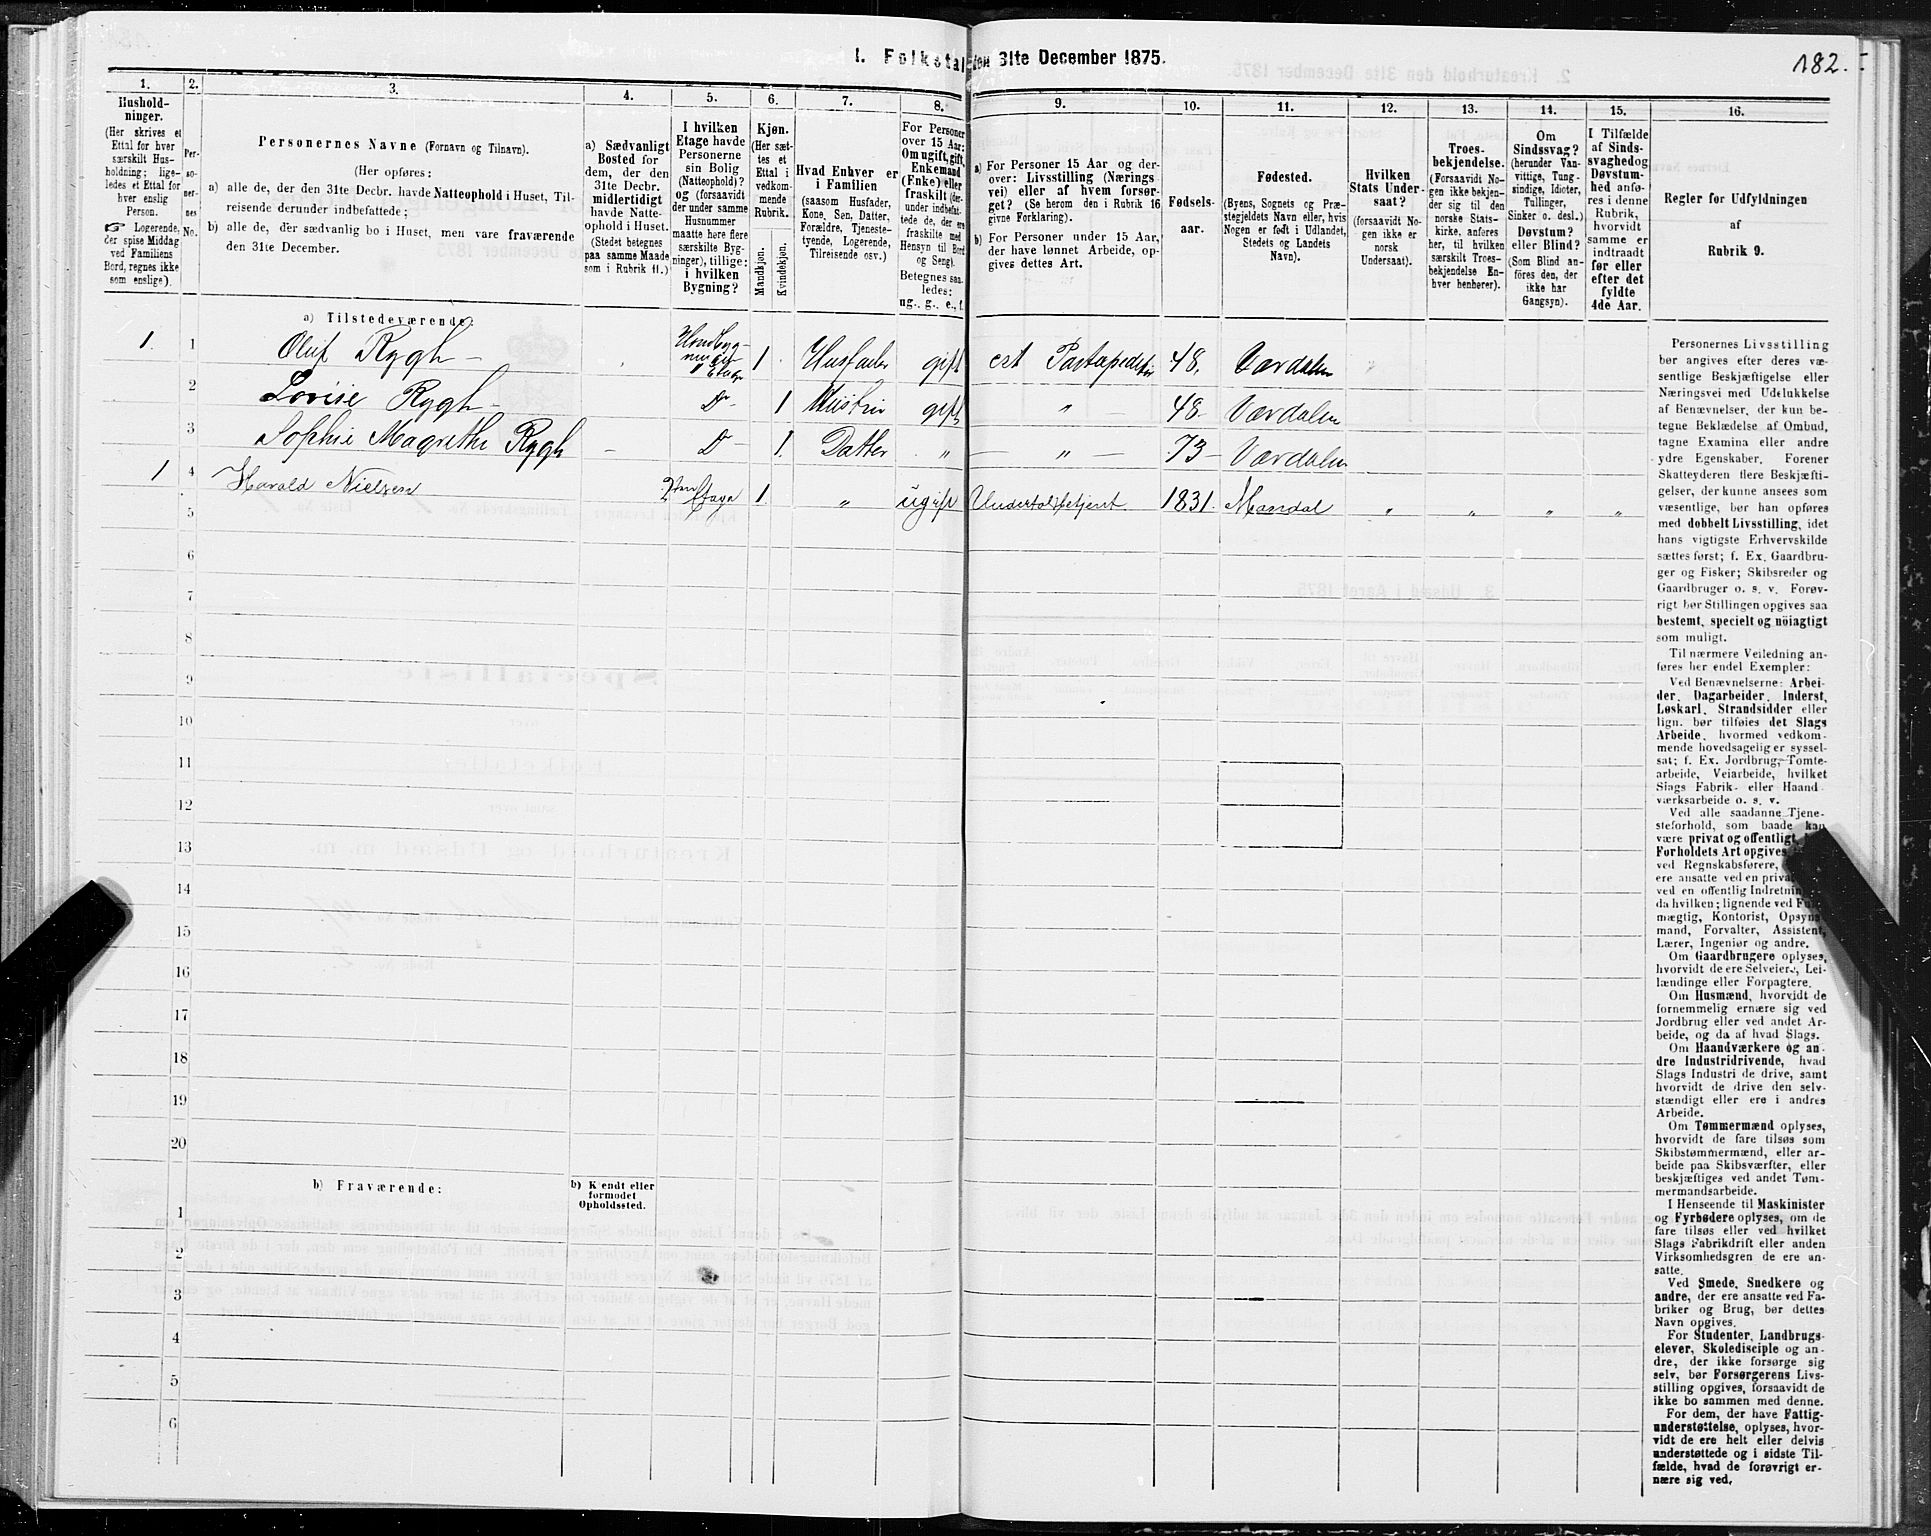 1. Folketal den 31te December 1875.
182.
1.
2.
3.
4.
5.
6.
7.
8.
9.
10.
11.
12.
13.
14.
15.
16.
Hushold-
ninger.
(Her skrives et
Ettal for hver
særskilt Hus-
holdning; lige-
ledes et Ettal for
hver enslig
Person.
☞ Logerende,
der spise Middag
ved Familiens
Bord, regnes ikke
som enslige).
Per-
so-
ner-
nes
No.
Personernes Navne (Fornavn og Tilnavn).
(Her opføres:
a) alle de, der den 31te Decbr. havde Natteophold i Huset, Til-
reisende derunder indbefattede;
b) alle de, der sædvanlig bo i Huset, men vare fraværende
den 31te December.
a) Sædvanligt
Bosted for
dem, der den
31te Decbr.
midlertidigt
havde Natte-
ophold i Huset.
(Stedet betegnes
paa samme Maade
som i Rubrik 11.)
I hvilken
Etage havde
Personerne
sin Bolig
(Natteophold)?
og (forsaavidt
der under samme
Husnummer
maatte høre flere
særskilte Byg-
ninger), tillige:
i hvilken
Bygning?
Kjøn.
(Her sæt-
tes et
Ettal i
vedkom-
mende
Rubrik.
Mandkjøn.
Kvindekjøn.
Hvad Enhver er
i Familien
(saasom Husfader,
Kone, Søn, Datter,
Forældre, Tjeneste-
tyende, Logerende,
Tilreisende osv.)
For Personer
over 15 Aar:
Om ugift, gift,
Enkemand
(Enke) eller
fraskilt (der-
under indbefat-
tede de, der ere
fraskilte med
Hensyn til Bord
og Seng).
Betegnes saa-
ledes:
ug., g., e., f.
a) For Personer 15 Aar og der-
over: Livsstilling (Nærings-
vei) eller af hvem forsør-
get? (Se herom den i Rubrik 16
givne Forklaring).
b) For Personer under 15 Aar,
der have lønnet Arbeide, op-
gives dettes Art.
Fødsels-
aar.
Fødested.
(Byens, Sognets og Præ-
stegjeldets Navn eller, hvis
Nogen er født i Udlandet,
Stedets og Landets
Navn).
Hvilken
Stats Under-
saat?
(forsaavidt No-
gen ikke er
norsk
Undersaat).
Troes-
bekjendelse.
(Forsaavidt No-
gen ikke bekjen-
der sig til den
norske Stats-
kirke, anføres
her, til hvilken
særskilt Troes-
bekjendelse En-
hver henhører).
Om
Sindssvag?
(herunder Van-
vittige, Tung-
sindige, Idioter,
Tullinger,
Sinker o. desl.)
Døvstum?
eller Blind?
(Som Blind an-
føres den, der
ikke har
Gangsyn).
I Tilfælde
af Sinds-
svaghed og
Døvstum-
hed anfø-
res i denne
Rubrik,
hvorvidt
samme er
indtraadt
før eller
efter det
fyldte
4de Aar.
Regler for Udfyldningen
af
Rubrik 9.
a) Tilstedeværende:
1. 1 Oluf Rygh 1 Husfader gift 48. Værdalen
2 Lovise Rygh Do 1 Hustru gift " 48 Værdalen
3 Sophie Magrethe Rygh Do 1. Datter " " 73 Værdalen
1 4 Harald Nielsen 2den Etage 1. " ugift 1831. Mandal " " " "
5
6
7
8
9
10
11
12
13
14
15
16
17
18
19
20
b) Fraværende:
b) Kjendt eller
formodet
Opholdssted.
1
2
3
4
5
6
Personernes Livsstilling
bør angives efter deres væ-
sentlige Beskjæftigelse eller
Næringsvei med Udelukkelse
af Benævnelser, der kun be-
tegne Beklædelse af Ombud,
tagne Examina eller andre
ydre Egenskaber. Forener
Skatteyderen flere Beskjæfti-
gelser, der kunne ansees som
væsentlige, bør han opføres
med dobbelt Livsstilling, idet
hans vigtigste Erhvervskilde
sættes først; f. Ex. Gaardbru-
ger og Fisker; Skibsreder og
Gaardbruger o. s. v. Forøv-
rigt bør Stillingen opgives saa
bestemt, specielt og nöiagtigt
som muligt.
Til nærmere Veiledning an-
føres her endel Exempler:
Ved Benævnelserne: Arbei-
der, Dagarbeider, Inderst,
Løskarl, Strandsidder eller
lign. bør tilføies det Slags
Arbeide, hvormed vedkom-
mende hovedsagelig er syssel-
sat; f. Ex. Jordbrug, Tomte-
arbeide, Veiarbeide, hvilket
Slags Fabrik- eller Haand-
værksarbeide o. s. v.
Ved alle saadanne Tjene-
steforhold, som baade kan
være privat og offentligt,
Forholdets Art opgives,
ved Regnskabsførere,
ere ansatte ved en
ved en offentlig Indretning
da hvilken; lignende ved
mægtig, Kontorist, Opsyns-
mand, Forvalter, Assistent,
Lærer, Ingeniør og andre.
Om Gaardbrugere oplyses,
hvorvidt de ere Selveiere, Lei-
lændinge eller Forpagtere.
Om Husmænd, hvorvidt de
fornemmelig ernære sig ved
Jordbrug eller ved andet Ar-
beide, og da af hvad Slags.
Om Haandværkere og an-
dre Industridrivende, hvad
Slags Industri de drive, samt
hvorvidt de drive den selv-
stændigt eller ere i andres
Arbeide.
Om Tømmermænd oplyses,
hvorvidt de fare tilsøs som
Skibstømmermænd, eller ar-
beide paa Skibsværfter, eller
beskjæftiges ved andet Tøm-
mermandsarbeide.
I Henseende til Maskinister
og Fyrbødere oplyses, om de
fare tilsøs eller ved hvilket
Slags Fabrikdrift eller anden
Virksomhedsgren de ere an-
satte.
Ved Smede, Snedkere og
andre, der ere ansatte ved Fa-
briker og Brug, bør dettes
Navn opgives.
For Studenter, Landbrugs-
elever, Skoledisciple og an-
dre, der ikke forsørge sig
selv, bør Forsørgerens Livs-
stilling opgives, forsaavidt de
ikke bo sammen med denne.
For dem, der have Fattig-
understøttelse, oplyses, hvor-
vidt de ere helt eller delvis
understøttede og i sidste Til-
fælde, hvad de forøvrigt er-
nære sig ved.